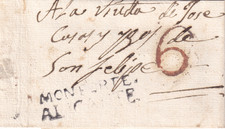 A la Viuda de Jose
Casas y
6
San Felipe
MONFORTE
ALICANTE